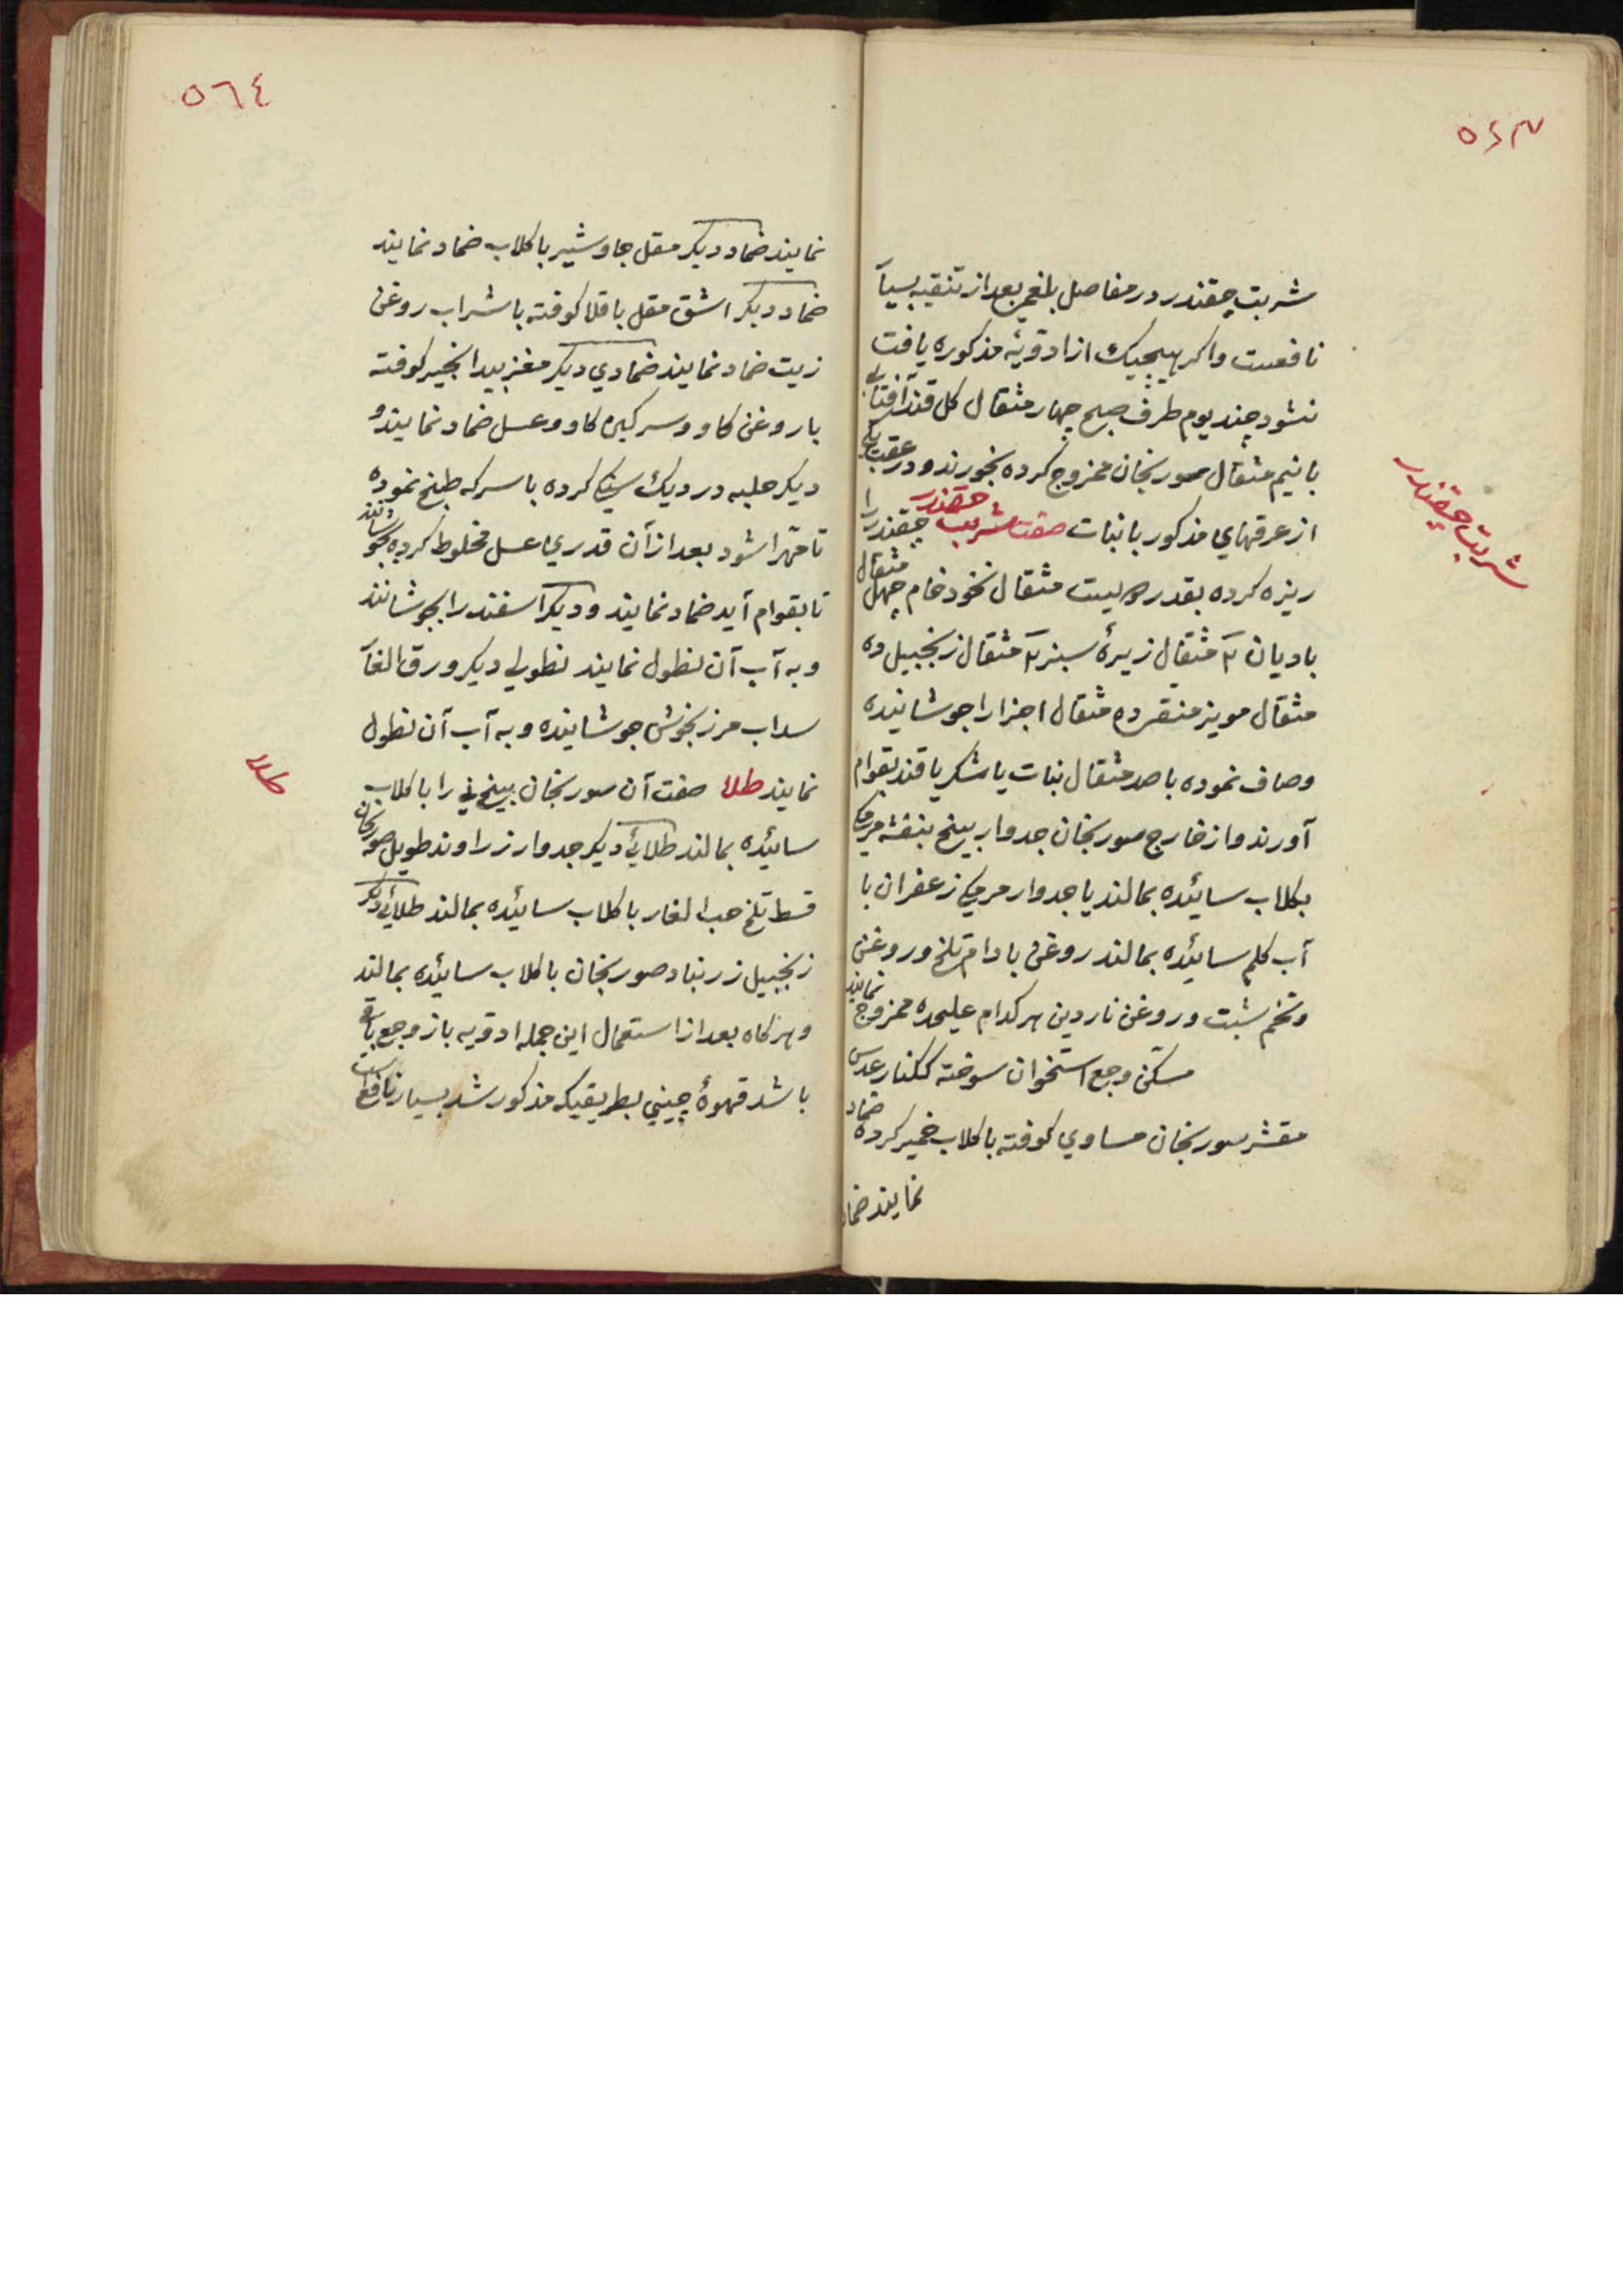 ٥٦٣
شربت چقندر در مفاصل بلغمی بعد از تنقیه بسیار
نافعست واکر هیچیک از ادویهٔ مذکوره یافت
نشود چند یوم طرف صبح چهار مثقال کل قند آفتابی
با نیم مثقال سورنجان ممزوج کرده بخورند و در عقب یکی
از عرقهای مذکور با نبات صفت شربت چقندر چقندر را
ریزه کرده بقدر بیست مثقال نخود خام چهل مثقال
بادیان ۲ مثقال زیرهٔ سبز ۲ مثقال زنجبیل ده
مثقال مویز منقی ده مثقال اجزا را جوشانیده
وصاف نموده با صد مثقال نبات یا شکر یا قند بقوام
آورند واز خارج سورنجان جدوار بیخ بنفشه مرمکی
بکلاب سائیده بمالند یا جدوار مرمکی زعفران با
آب کلم سائیده بمالند روغن بادام تلخ و روغن
وتخم شبت وروغن ناردین هرکدام علیحده ممزوج نمایند
مسکن وجع استخوان سوخته ککنار عدس
مقشر سورنجان مساوی کوفته با کلاب خمیر کرده ضماد
نمایند ضماد
شربت چقندر
٥٦٤
نمایند ضماد دیکر مقل جاوشیر با کلاب ضماد نمایند
ضماد دیکر اشق مقل باقلا کوفته با شراب روغن
زیت ضماد نمایند ضمادی دیکر مغز بیدانجیر کوفته
با روغن کاو و سرکین کاو و عسل ضماد نمایند و
دیکر حلبه در دیک کرده با سرکه طبخ نموده
تا مهرا شود بعد از آن قدری عسل مخلوط کرده بجوشانند
تا بقوام آید ضماد نمایند و دیکر اسفند را بجوشانند
و به آب آن نطول نمایند نطولی دیکر ورق الغار
سداب مرزنجوش جوشانیده و به آب آن نطول
نمایند طلا صفت آن سورنجان را با کلاب
سائیده بمالند طلائی دیکر جدوار زراوند طویل صورنجان
قسط تلخ حب الغار با کلاب سائیده بمالند طلائی دیکر
زنجبیل زرنباد صورنجان با کلاب سائیده بمالند
و هرکاه بعد از استعمال این جمله ادویه باز وجع باقی
باشد قهوهٔ چینی بطریقیکه مذکور شد بسیار نافع است
طلا